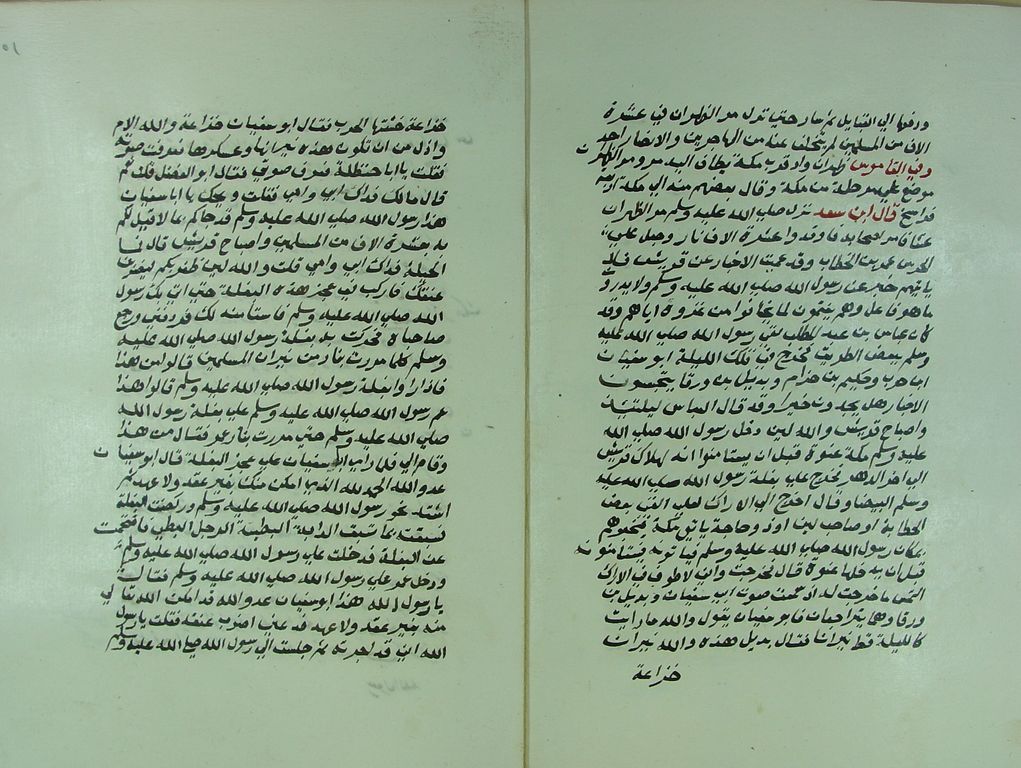 ودفعها الى القبايل ثم سار حتى نزل مر الظهران في عشرة
الاف من المسلمين لم يتخلف عنه من المهاجرين والانصار احد
وفي القاموس ظهران واد قرب مكة يضاف اليه مر ومر الظهران
موضع على مرحلة من مكة وقال بعضهم منه الى مكة اربعة
فراسخ قال ابن سعد نزل صلى الله عليه وسلم مر الظهران
عشاء فامر اصحابه فاوقدوا عشرة الاف نار وجعل على
الحرس عمر بن الخطاب وقد عميت الاخبار عن قريش فلا
ياتيهم خبر عن رسول الله صلى الله عليه وسلم ولا يدرو
ما هو فاعل وهم يغتمون لما يخافوا من غزوه اياهم وقد
كان عباس بن عبد المطلب لقي رسول الله صلى الله عليه
وسلم ببعض الطريق فخرج في تلك الليلة ابو سفيان
ابن حرب وحكيم بن حزام وبديل بن ورقا يتحسسون
الاخبار هل يجدون خبرا وقد قال العباس ليلتئذ
واصباح قريش والله لين دخل رسول الله صلى الله
عليه وسلم مكة عنوة قبل ان يستامنوا انه لهلاك قريش
الى اخر الدهر فخرج على بغلة رسول الله صلى الله عليه
وسلم البيضا وقال اخرج الى الاراك لعلي القى بعض
الحطابة او صاحب لبن او ذو حاجة ياتي مكة فيخبرهم
بمكان رسول الله صلى الله عليه وسلم فياتونه فيستامنونه
قبل ان يدخلها عنوة قال فخرجت واني لاطوف في الاراك
التمس ما خرجت له اذ سمعت صوت ابي سفيان وبديل بن
ورقا وهما يتراجعان فابو سفيان يقول والله ما رايت
كالليلة قط نيرانا فقال بديل هذه والله نيران
خزاعة
خزاعة حمشتها الحرب فقال ابو سفيان خزاعة والله الام
واذل من ان تكون هذه نيرانها وعسكرها فعرفت صوته
فقلت يا ابا حنظلة فعرف صوتي فقال ابو الفضل قلت نعم
قال مالك فداك ابي وامي فقلت ويحك يا ابا سفيان
هذا رسول الله صلى الله عليه وسلم قد جاكم بما لا قبل لكم
به بعشرة الاف من المسلمين واصباح قريش قال فما
الحيلة فداك ابي وامي قلت والله لين ظفر بكم ليضربن
عنقك فاركب في عجز هذه البغلة حتى اتي بك رسول
الله صلى الله عليه وسلم فاستامنه لك فردفني ورجع
صاحباه فحركت به بغلة رسول الله صلى الله عليه
وسلم كلما مررت بنار من نيران المسلمين قالوا من هذا
فاذا راوا بغلة رسول الله صلى الله عليه وسلم قالوا هذا
عم رسول الله صلى الله عليه وسلم على بغلة رسول الله
صلى الله عليه وسلم حتى مررت بنار عمر فقال من هذا
وقام الي فلما راى ابا سفيان على عجز البغلة قال ابو سفيان
عدو الله الحمد لله الذي امكن منك بغير عقد ولا عهد ثم
اشتد نحو رسول الله صلى الله عليه وسلم وركضت البغلة
فسبقته بما تسبق الدابة البطيئة الرجل البطي فاقتحمت
عن البغلة فدخلت على رسول الله صلى الله عليه وسلم
ودخل عمر على رسول الله صلى الله عليه وسلم فقال
يا رسول الله هذا ابو سفيان عدو الله قد امكن الله تعالى
منه بغير عقد ولا عهد فدعني اضرب عنقه فقلت يا رسول
الله اني قد اجرته ثم جلست الى رسول الله صلى الله عليه وسلم